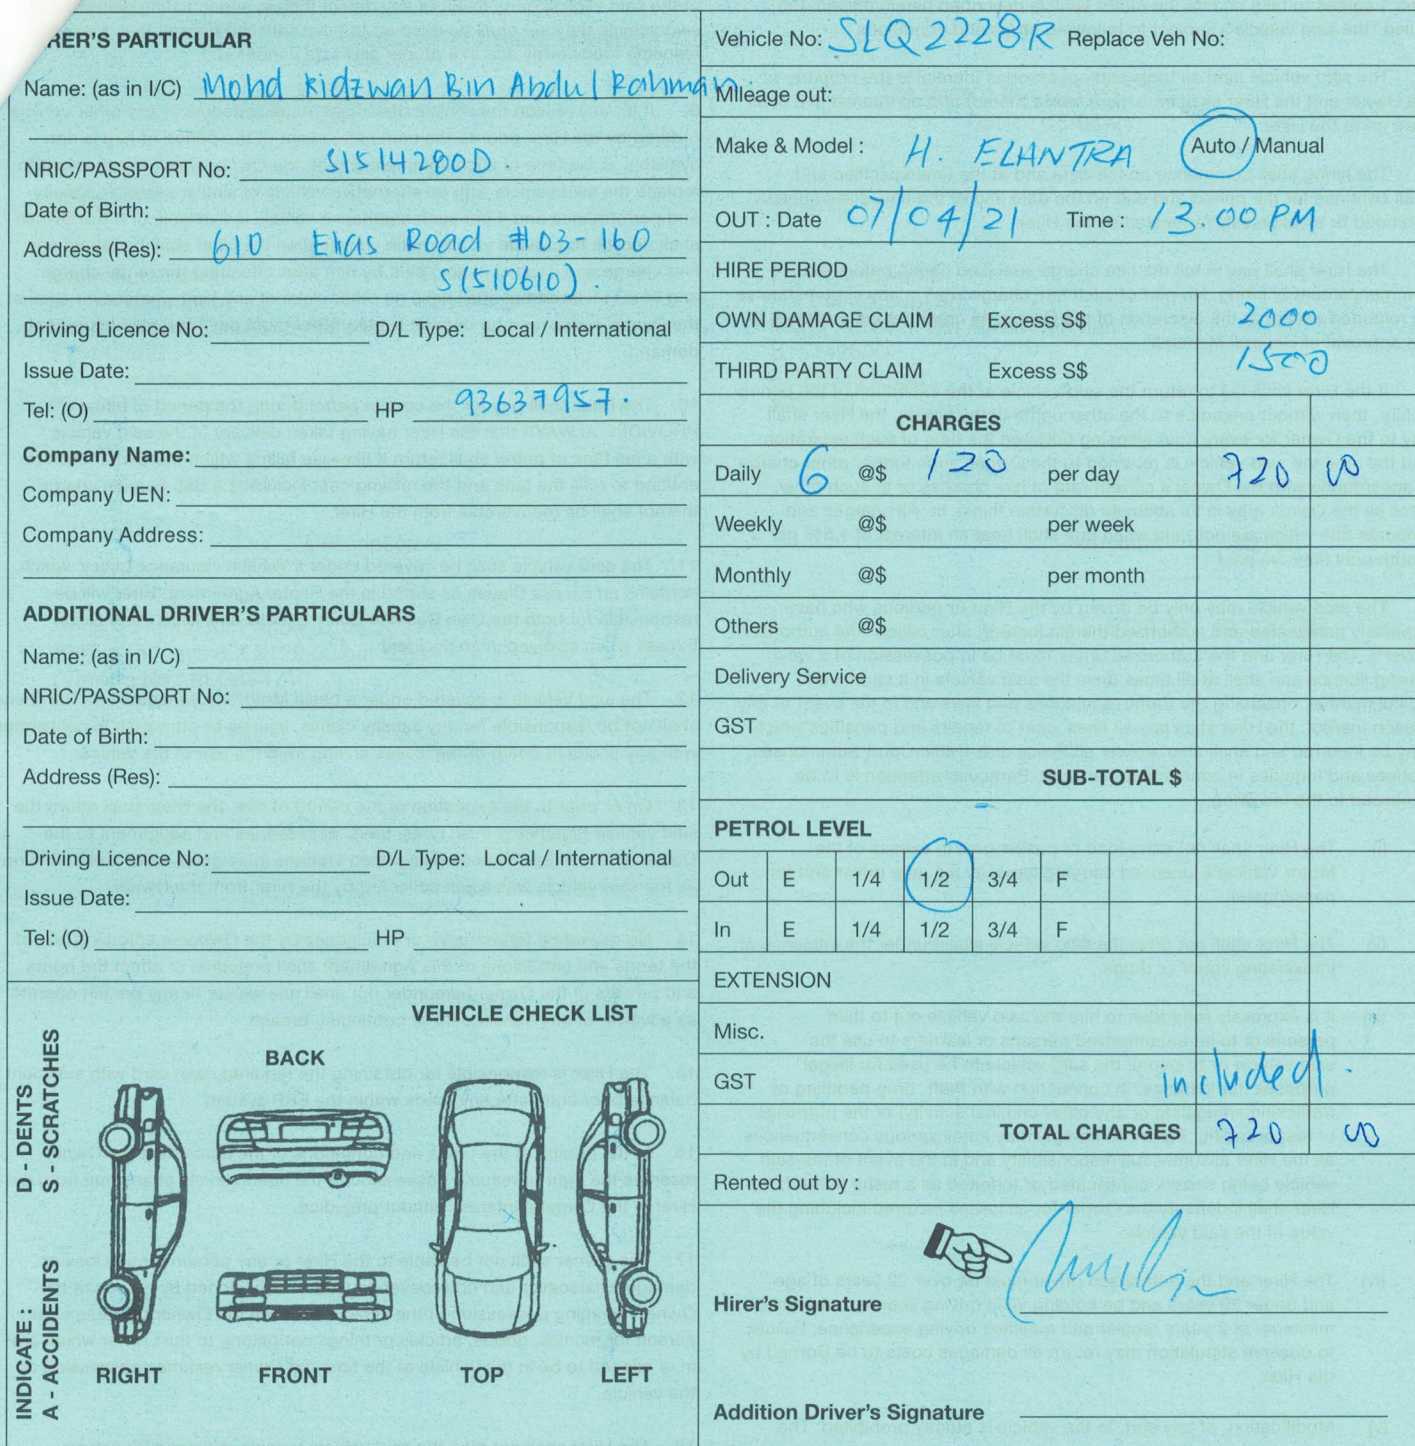 RER'S PARTICULAR
Name: (as in I/C) Mohd Ridzwan Bin Abdul Rahman.
NRIC/PASSPORT No: S1514280D.
Date of Birth:
Address (Res): 610 Elias Road #03-160
S(510610).
Driving Licence No: D/L Type: Local / International
Issue Date:
Tel: (O) HP 93637957.
Company Name:
Company UEN:
Company Address:
ADDITIONAL DRIVER'S PARTICULARS
Name: (as in I/C)
NRIC/PASSPORT No:
Date of Birth:
Address (Res):
Driving Licence No: D/L Type: Local / International
Issue Date:
Tel: (O) HP
VEHICLE CHECK LIST
INDICATE :
A - ACCIDENTS
D - DENTS
S - SCRATCHES
BACK
RIGHT FRONT TOP LEFT
Vehicle No: SLQ2228R Replace Veh No:
Mileage out:
Make & Model : H. ELANTRA Auto / Manual
OUT : Date 07/04/21 Time : 13.00 PM
HIRE PERIOD
OWN DAMAGE CLAIM Excess S$ 2000
THIRD PARTY CLAIM Excess S$ 1500
CHARGES
Daily 6 @$ 120 per day 720 00
Weekly @$ per week
Monthly @$ per month
Others @$
Delivery Service
GST
SUB-TOTAL $
PETROL LEVEL
Out E 1/4 1/2 3/4 F
In E 1/4 1/2 3/4 F
EXTENSION
Misc.
GST included.
TOTAL CHARGES 720 00
Rented out by :
Hirer's Signature
Addition Driver's Signature